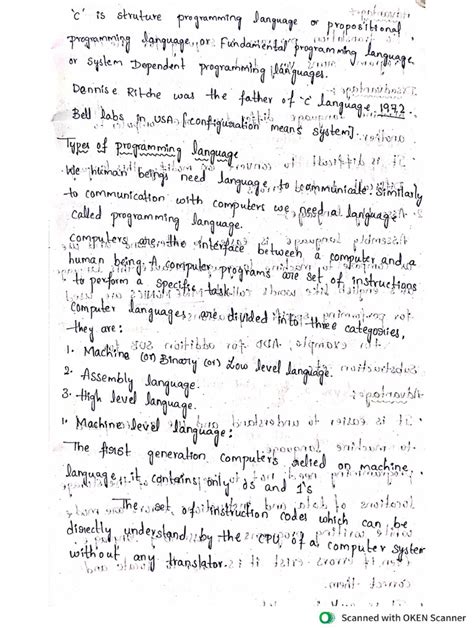 'C' is struture programming language or propositional
programming language or Fundamental programming language
or system Dependent programming languages.
Dennise Ritche was the father of 'C' language 1972
Bell labs in USA [configuration means system].
Types of programming language
We human beings need language to communicate. Similarly
to communication with computers we need a language
called programming language.
Computers are the interface between a computer and a
human being. A computer programs are set of instructions
to perform a specific task.
Computer languages are divided into three categories,
they are:
1. Machine (or) Binary (or) Low level language.
2. Assembly language.
3. High level language.
1. Machine level language:
The first generation computers relied on machine
language, it contains only 0s and 1's
The set of instruction codes which can be
directly understand by the CPU of a computer system
without any translator.
Scanned with OKEN Scanner